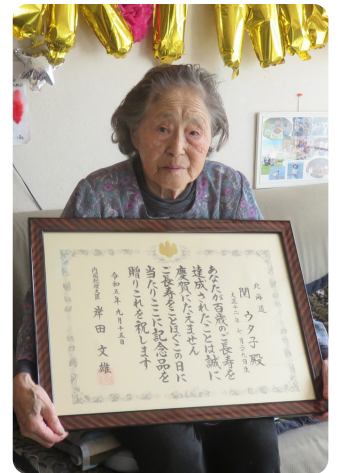 北海道
関 ウタ子 殿
大正十二年七月二十九日生
あなたが百歳のご長寿を
達成されたことは誠に
慶賀にたえません
ご長寿をことほぐこの日に
当たりここに記念品を
贈りこれを祝します
令和五年九月十五日
内閣総理大臣 岸田文雄